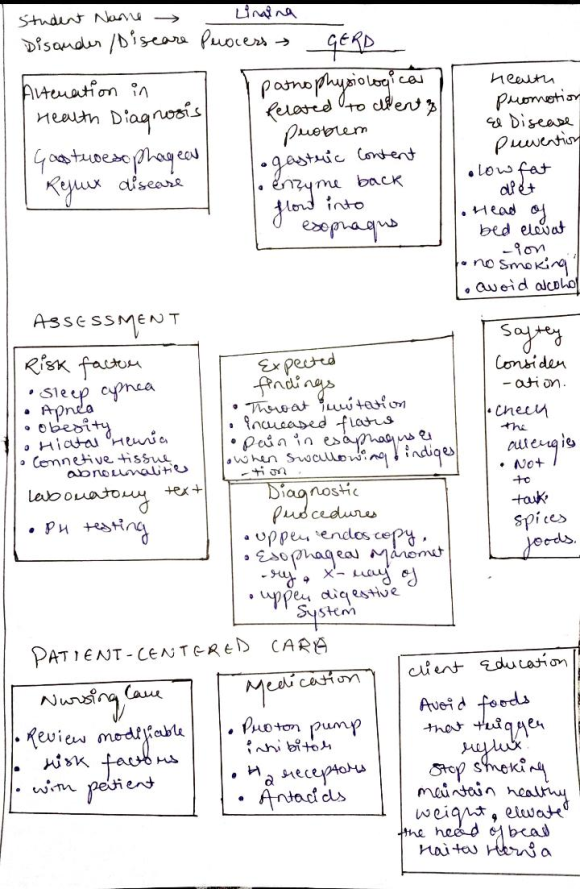 Student Name → Limina
Disorder/Disease Process → GERD
Alteration in
Health Diagnosis
Gastroesophageal
Reflux disease
Pathophysiological
Related to client's
Problem
• gastric content
• enzyme back
flow into
esophagus
Health
Promotion
& Disease
Prevention
• low fat
diet
• Head of
bed elevat
-ion
• no smoking
• avoid alcohol
ASSESSMENT
Risk factor
• Sleep apnea
• Apnea
• obesity
• Hiatal Hernia
• Connetive tissue
abnormalities
Laboratory text
• PH testing
Expected
findings
• Throat irritation
• increased flatus
• pain in esophagus &
• when swallowing • indiges
-tion.
Diagnostic
Procedures
• upper endoscopy,
• Esophageal Manomet
-ry, X-ray of
• upper digestive
System
Saftey
Consider
-ation.
• check
the
allergies
• Not
to
take
spices
foods.
PATIENT-CENTERED CARE
Nursing Care
• Review modifiable
• risk factors
• with patient
Medication
• Proton pump
inhibitor
• H2 receptors
• Antacids
client Education
Avoid foods
that trigger
reflux.
Stop smoking
maintain healthy
weight, elevate
the head of bead
Haital Hernia